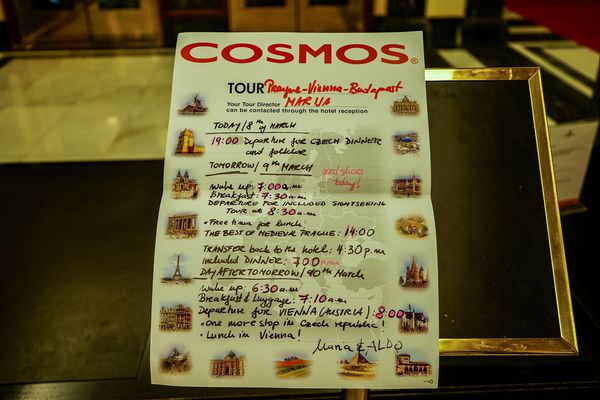 COSMOS®
TOUR Prague-Vienna-Budapest
Your Tour Director MARIJA
can be contacted through the hotel reception
TODAY / 8th of MARCH
19:00 Departure for CZECH DINNER
and folklore
TOMORROW / 9th MARCH
good shoes
today!
Wake up: 7:00 a.m
Breakfast: 7:30 a.m
DEPARTURE FOR INCLUDED SIGHTSEEING
TOUR at 8:30 a.m
• Free time for lunch!
THE BEST OF MEDIEVAL PRAGUE: 14:00
TRANSFER back to the hotel: 4:30 p.m
Included DINNER: 7:00 p.m
DAY AFTER TOMORROW / 10th March
Wake up: 6:30 a.m
Breakfast & Luggage: 7:10 a.m
Departure for VIENNA (AUSTRIA): 8:00
• one more stop in Czech republic!
• Lunch in Vienna!
Maria & ALDO